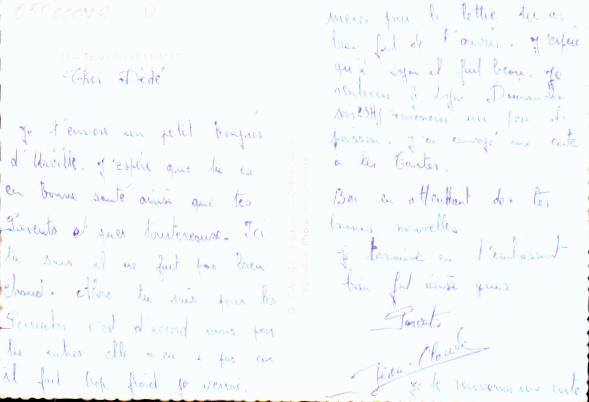 Cher Dédé
Je t'envoie un petit bonjour
d'Urville. J'espère que tu es
en bonne santé ainsi que tes
Parents et ques Ici
tu sais il ne fait pas bien
chaud. Alors tu sais pour les
c'est d'accord mais pour
les autres elle a eu pas car
il fait trop froid je verrai.
merci pour la lettre tu as
bien fait de l'ouvrir. J'espère
qu'à Lyon il fait beau. Je
rentrerai à Lyon Dimanche
soir un peu de
poisson. J'ai envoyé une carte
à tes Tantes.
Bon en attendant de tes
bonnes nouvelles
Je termine en t'embrassant
bien fort ainsi ques
Parents
Jean-Claude
Je te renverrai une carte